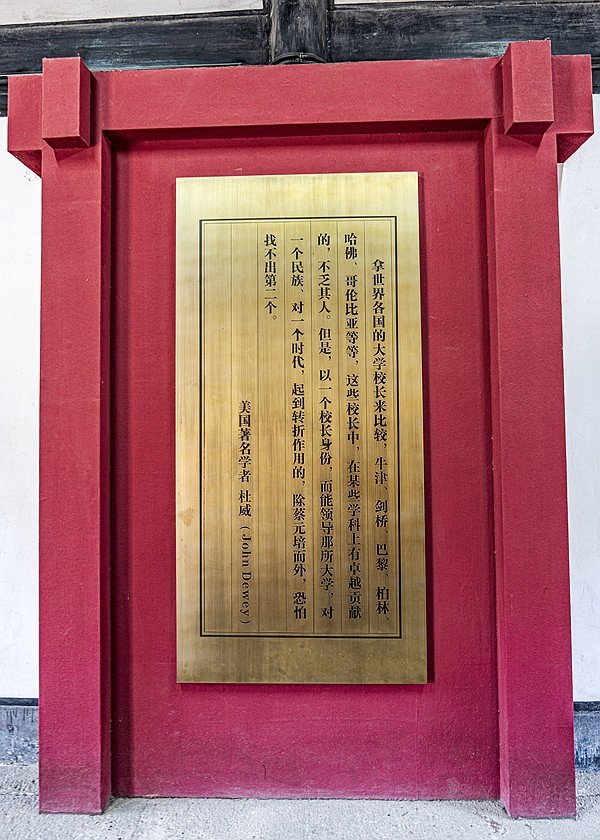 拿世界各国的大学校长来比较，牛津、剑桥、巴黎、柏林、
哈佛、哥伦比亚等等，这些校长中，在某些学科上有卓越贡献
的，不乏其人。但是，以一个校长身份，而能领导那所大学，对
一个民族、对一个时代，起到转折作用的，除蔡元培而外，恐怕
找不出第二个。
美国著名学者 杜威（John Dewey）